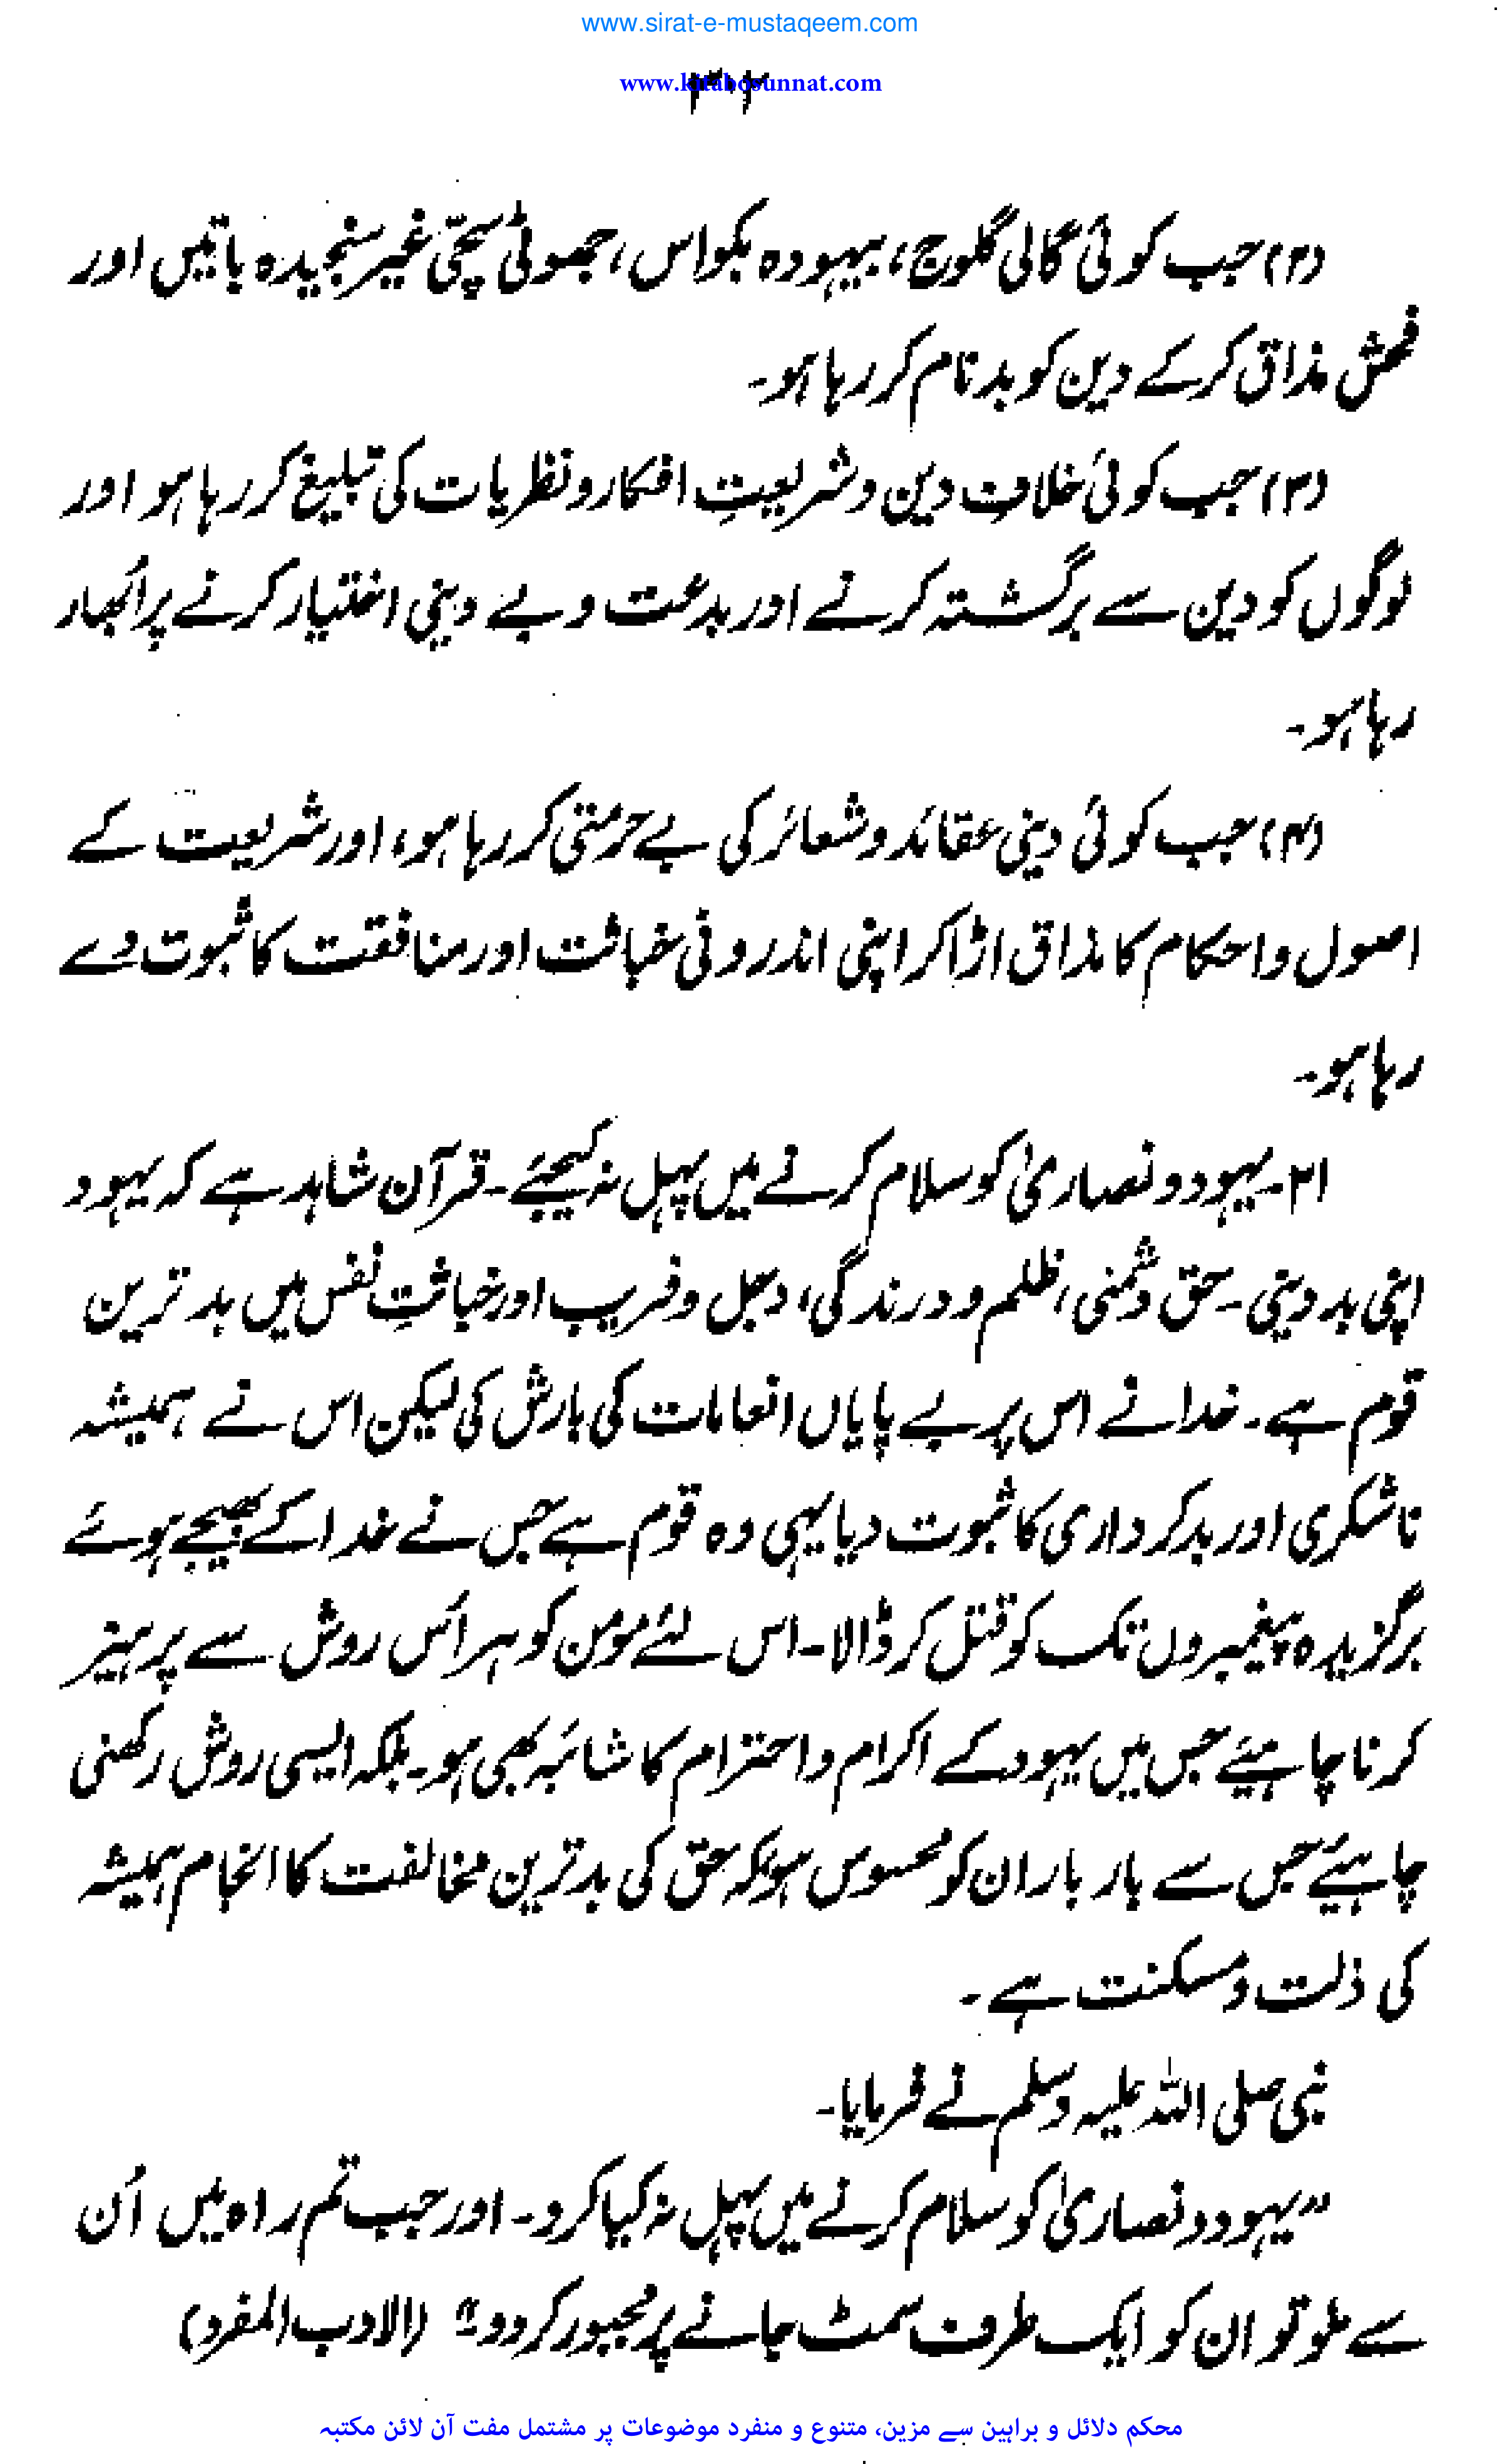 www.sirat-e-mustaqeem.com
www.kitabosunnat.com
۳۰۲
(۲) جب کوئی گالی گلوج، بیہودہ بکواس، جھوٹی سچی غیر سنجیدہ باتیں اور
فحش مذاق کرکے دین کو بدنام کر رہا ہو۔
(۳) جب کوئی خلافِ دین و شریعتِ افکار و نظریات کی تبلیغ کر رہا ہو اور
لوگوں کو دین سے برگشتہ کرنے اور بدعت و بے دینی اختیار کرنے پر اُبھار
رہا ہو۔
(۴) جب کوئی دینی عقائد و شعائر کی بے حرمتی کر رہا ہو، اور شریعت کے
اصول و احکام کا مذاق اڑا کر اپنی اندرونی خباثت اور منافقت کا ثبوت دے
رہا ہو۔
۲۱۔ یہود و نصاریٰ کو سلام کرنے میں پہل نہ کیجئے۔ قرآن شاہد ہے کہ یہود
اپنی بد دینی۔ حق دشمنی، ظلم و درندگی، دجل و فریب اور خباثتِ نفس میں بد ترین
قوم ہے۔ خدا نے اس پر بے پایاں انعامات کی بارش کی لیکن اس نے ہمیشہ
ناشکری اور بدکرداری کا ثبوت دیا یہی وہ قوم ہے جس نے خدا کے بھیجے ہوئے
برگزیدہ پیغمبروں تک کو قتل کر ڈالا۔ اس لئے مومن کو ہر اُس روش سے پرہیز
کرنا چاہیئے جس میں یہود کے اکرام و احترام کا شائبہ بھی ہو۔ بلکہ ایسی روش رکھنی
چاہیئے جس سے بار بار ان کو محسوس ہو کہ حق کی بدترین مخالفت کا انجام ہمیشہ
کی ذلت و مسکنت ہے۔
نبی صلی اللہ علیہ وسلم نے فرمایا۔
”یہود و نصاریٰ کو سلام کرنے میں پہل نہ کیا کرو۔ اور جب تم راہ میں اُن
سے ملو تو ان کو ایک طرف سمٹ جانے پر مجبور کر دو۔“ (الادب المفرد)
محکم دلائل و براہین سے مزین، متنوع و منفرد موضوعات پر مشتمل مفت آن لائن مکتبہ